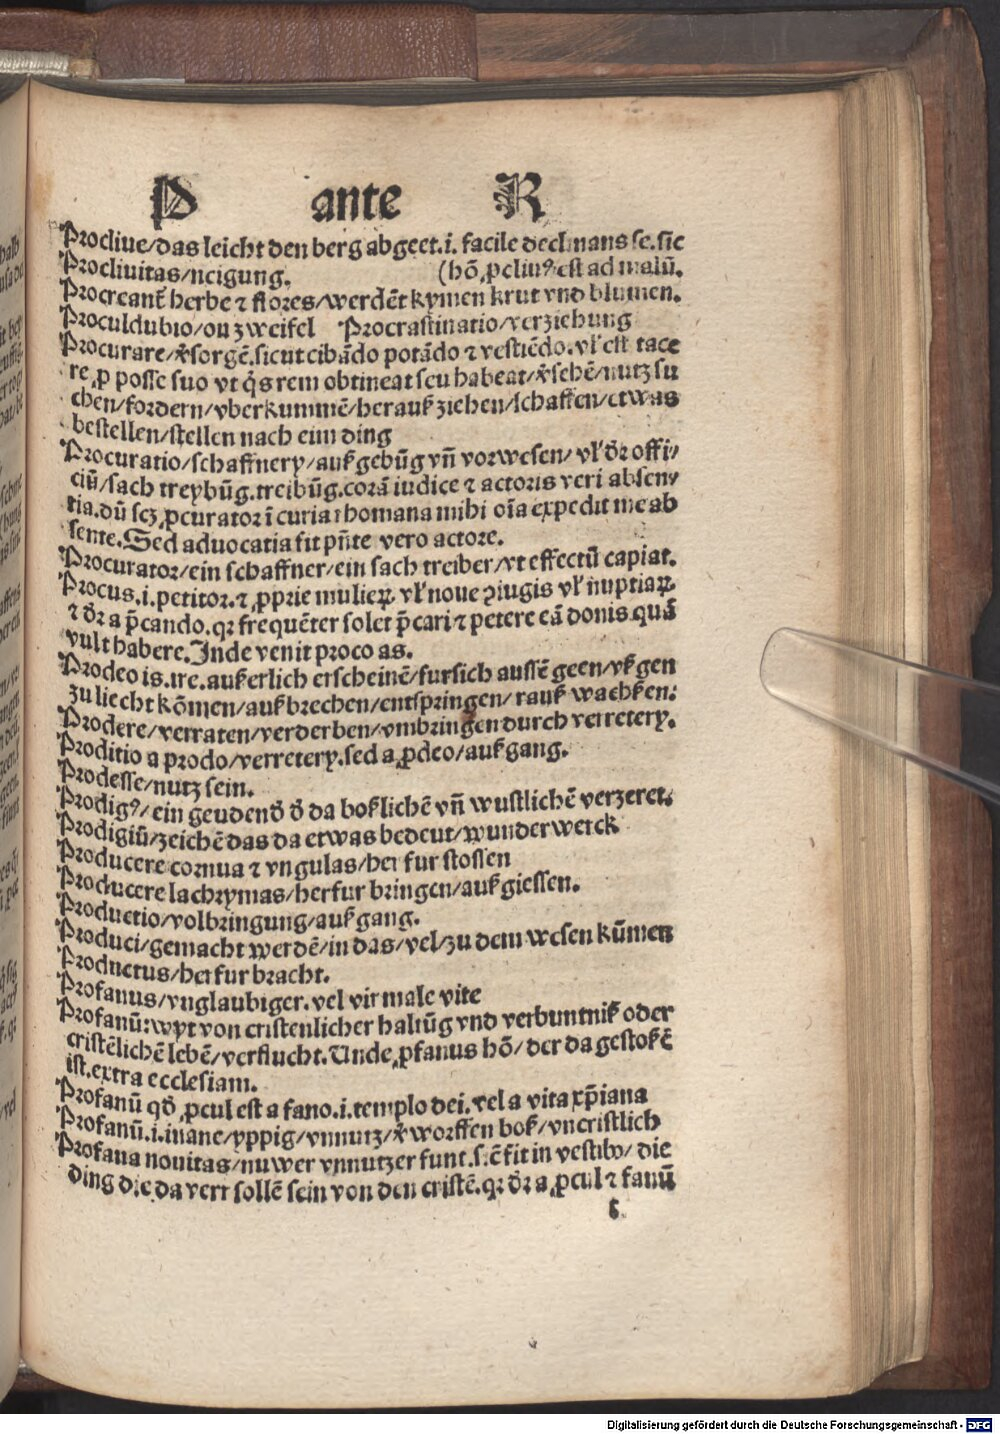 P ante R
Procliue/das leicht den berg abgeet.i. facile declinans se.sic
Procliuitas/neigung. (hō ꝓcliuꝰ est ad malū.
Procreant herbe ⁊ flores/werdēt kymen krut vnd blumen.
Proculdubio/on zweifel Procrastinatio/verziehung
Procurare/v̄sorgē.sicut cibādo potādo ⁊ vestiēdo.vl' est tace
re ꝓ posse suo vt q̇s rem obtineat seu habeat/v̄sehē/nutz su
chen/fordern/vberkummē/herauß ziehen/schaffen/etwas
bestellen/stellen nach eim ding
Procuratio/schaffnery/außgebūg vn̄ vorwesen/ vl' dr̄ offi/
ciū/sach treybūg.treibūg.corā iudice ⁊ actoris veri absen/
tia.dū scꝫ ꝓcurator ī curia rhomana mihi oīa expedit me ab
sente.Sed aduocatia fit pn̄te vero actore.
Procurator/ein schaffner/ein sach treiber/vt effectū capiat.
Procus.i.petitor.⁊ ꝓprie mulieꝝ vl' noue ꝯiugis vl' nuptiaꝝ
⁊ dr̄ a p̄cando.qꝛ frequēter solet p̄cari ⁊ petere eā donis quā
vult habere.Inde venit proco as.
Prodeo is.ire.außerlich erscheinē/fursich aussē geen/vßgen
zu liecht kōmen/außbrechen/entspringen/rauß wachßen:
Prodere/verraten/verderben/vmbringen durch verretery.
Proditio a prodo/verretery.sed a ꝓdeo/außgang.
Prodesse/nutz sein.
Prodigꝰ/ein geudend̄ d̄ da boßlichē vn̄ wustlichē verzeret.
Prodigiū/zeichē das da etwas bedeut/wunderwerck
Producere cornua ⁊ vngulas/her fur stossen
Producere lachrymas/herfur bringen/außgiessen.
Productio/volbringung/außgang.
Produci/gemacht werdē/in das/vel/zu dem wesen kūmen
Productus/herfur bracht.
Profanus/vnglaubiger.vel vir male vite
Profanū:wyt von cristenlicher haltūg vnd verbuntniß oder
cristēlichē lebē/verflucht.Unde ꝓfanus hō/der da gestoßē
ist.extra ecclesiam.
Profanū qd̄ ꝓcul est a fano.i.templo dei.vel a vita xp̄iana
Profanū.i.inane/yppig/vnnutz/v̄worffen boß/vncristlich
Profana nouitas/nuwer vnnutzer funt. fit in vestibꝫ/die
ding die da verr sollē sein von den cristē.qꝛ dr̄ a ꝓcul ⁊ fanū
t
Digitalisierung gefördert durch die Deutsche Forschungsgemeinschaft - DFG